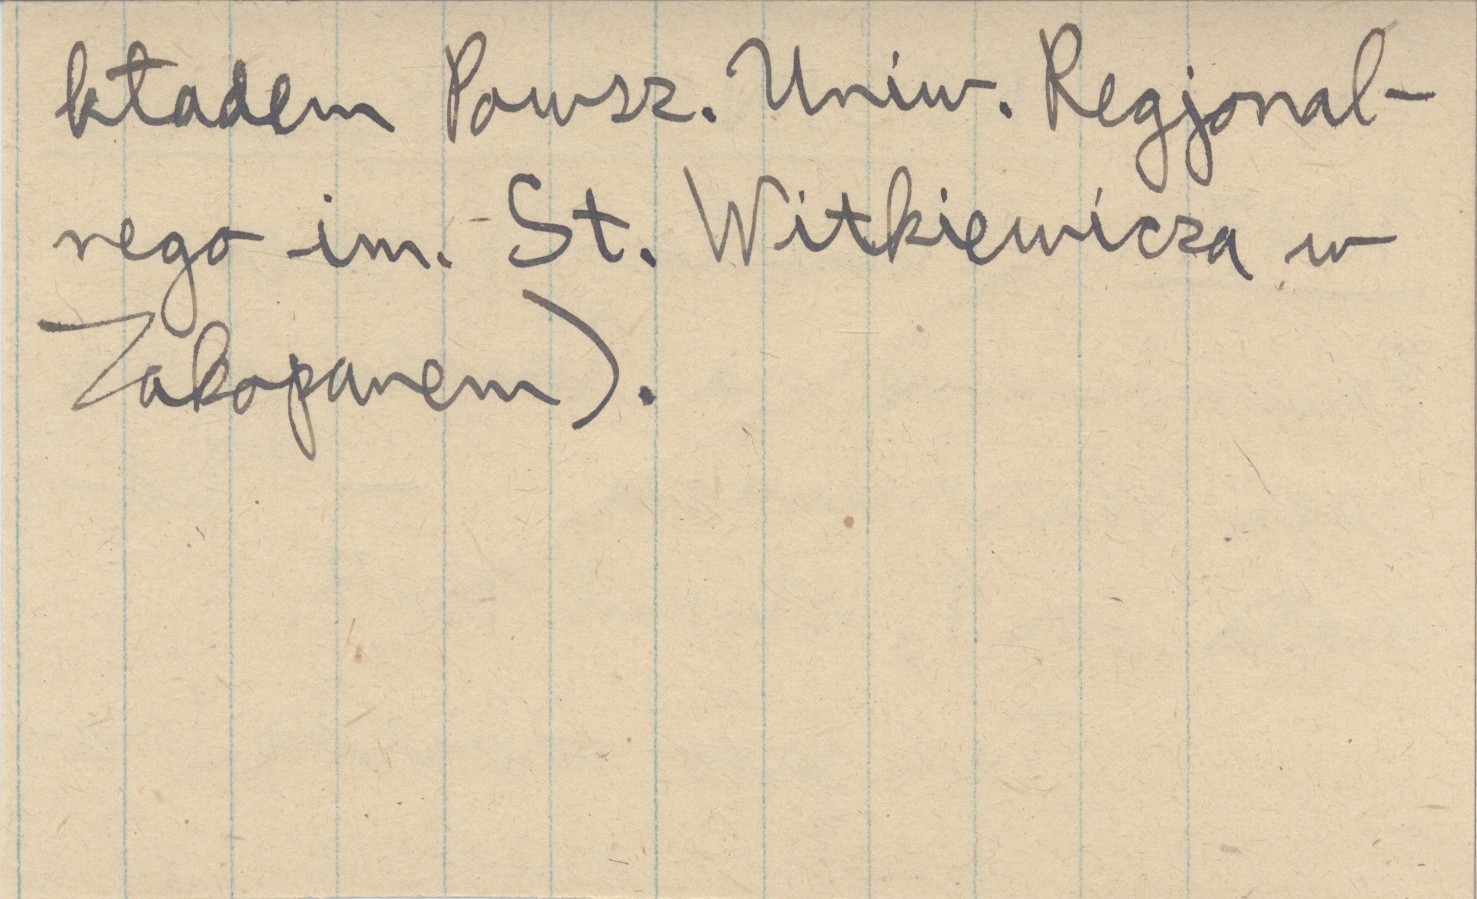 kładem Powsz. Uniw. Regjonal-
nego im. St. Witkiewicza w
Zakopanem).